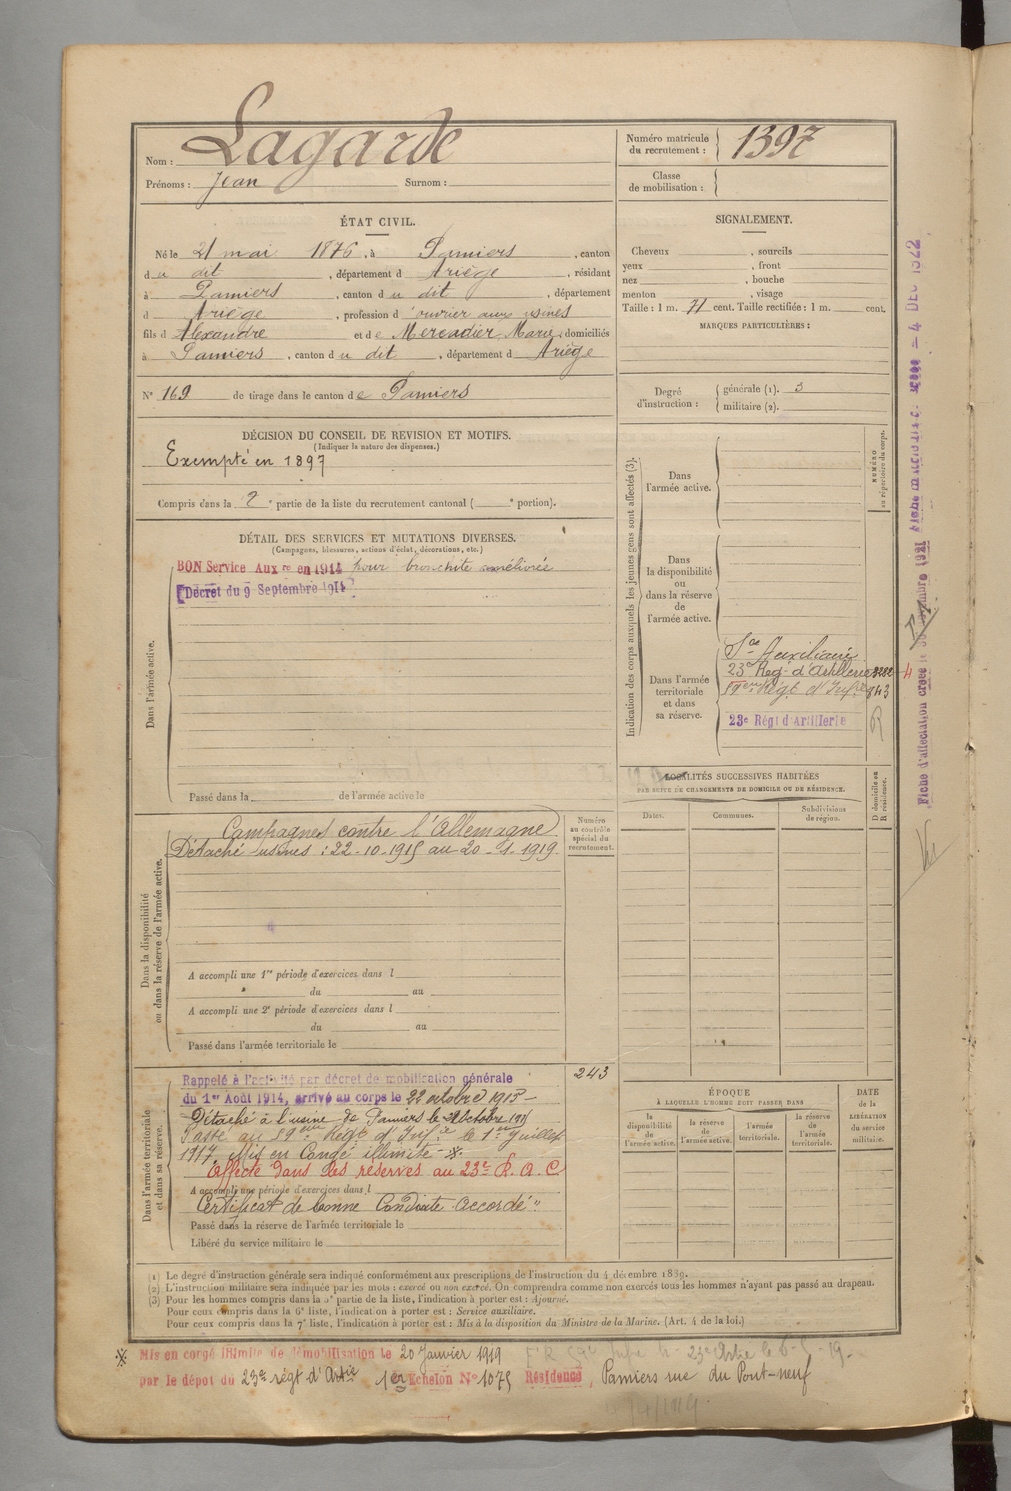 Nom : Lagarde
Prénoms : Jean Surnom :
Numéro matricule du recrutement : 1397
Classe de mobilisation :
ÉTAT CIVIL.
Né le 21 mai 1876, à Pamiers, canton
du dit, département d Ariège, résidant
à Pamiers, canton du dit, département
d Ariège, profession d'ouvrier aux usines
fils d Alexandre et de Mercadier Marie, domiciliés
à Pamiers, canton du dit, département d Ariège
N° 169 de tirage dans le canton de Pamiers
SIGNALEMENT.
Cheveux , sourcils
yeux , front
nez , bouche
menton , visage
Taille : 1 m. 71 cent. Taille rectifiée : 1 m. cent.
MARQUES PARTICULIÈRES :
Degré d'instruction : générale (1). 3
militaire (2).
DÉCISION DU CONSEIL DE REVISION ET MOTIFS.
(Indiquer la nature des dispenses.)
Exempté en 1897
Compris dans la 2e partie de la liste du recrutement cantonal ( e portion).
DÉTAIL DES SERVICES ET MUTATIONS DIVERSES.
(Campagnes, blessures, actions d'éclat, décorations, etc.)
BON Service Auxre en 1914 pour bronchite améliorée
Décret du 9 Septembre 1914
Dans l'armée active.
Passé dans la de l'armée active le
Indication des corps auxquels les jeunes gens sont affectés (3).
NUMÉRO au répertoire du corps.
Dans l'armée active.
Dans la disponibilité ou dans la réserve de l'armée active.
Dans l'armée territoriale et dans sa réserve.
Sce Auxiliaire
23e Régt d'Artillerie
Régt d'Infie
23e Régt d'Artillerie
R
LOCALITÉS SUCCESSIVES HABITÉES
PAR SUITE DE CHANGEMENTS DE DOMICILE OU DE RÉSIDENCE.
Dates. Communes. Subdivisions de région. D domicile ou R résidence.
Dans la disponibilité ou dans la réserve de l'armée active.
Numéro au contrôle spécial du recrutement.
Campagnes contre l'Allemagne
Détaché usines : 22-10-1915 au 20-1-1919
A accompli une 1re période d'exercices dans l
du au
A accompli une 2e période d'exercices dans l
du au
Passé dans l'armée territoriale le
243
Dans l'armée territoriale et dans sa réserve.
Rappelé à l'activité par décret de mobilisation générale
du 1er Août 1914, arrivé au corps le 22 octobre 1915
Détaché à l'usine de Pamiers le 22 Octobre 1915
Passé au 59eme Régt d'Infie le 1er Juillet
1917, Mis en Congé illimité ※
Affecté dans les réserves au 23e R.A.C
A accompli une période d'exercices dans l
Certificat de bonne Conduite "Accordé"
Passé dans la réserve de l'armée territoriale le
Libéré du service militaire le
ÉPOQUE
À LAQUELLE L'HOMME DOIT PASSER DANS
la disponibilité de l'armée active.
la réserve de l'armée active.
l'armée territoriale.
la réserve de l'armée territoriale.
DATE de la LIBÉRATION du service militaire.
(1) Le degré d'instruction générale sera indiqué conformément aux prescriptions de l'instruction du 4 décembre 1889.
(2) L'instruction militaire sera indiquée par les mots : exercé ou non exercé. On comprendra comme non exercés tous les hommes n'ayant pas passé au drapeau.
(3) Pour les hommes compris dans la 2e partie de la liste, l'indication à porter est : Ajourné.
Pour ceux compris dans la 6e liste, l'indication à porter est : Service auxiliaire.
Pour ceux compris dans la 7e liste, l'indication à porter est : Mis à la disposition du Ministre de la Marine. (Art. 4 de la loi.)
※ Mis en congé illimité de démobilisation le 20 Janvier 1919
par le dépôt du 23e régt d'Artie 1er Echelon N° 1075 Résidence, Pamiers rue du Pont-neuf
Fiche d'affectation créée le
4 DEC 1922